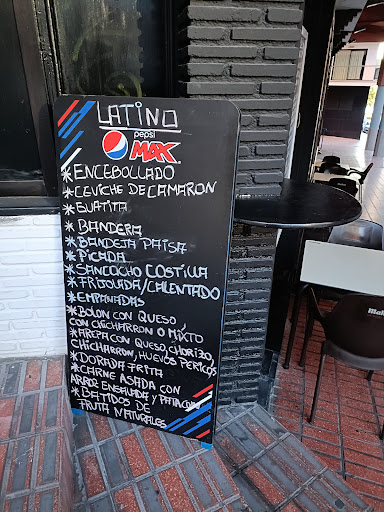 LATINO
pepsi
MAX
*ENCEBOLLADO
*CEVICHE DE CAMARON
*GUATITA
*BANDERA
*BANDEJA PAISA
*PICADA
*SANCOCHO COSTILLA
*FRIJOLADA/CALENTADO
*EMPANADAS
*BOLON CON QUESO
CON CHICHARRON O MIXTO
*AREPA CON QUESO, CHORIZO,
CHICHARRON, HUEVOS PERICOS
*DORADA FRITA
*CARNE ASADA CON
ARROZ ENSALADA Y PATACON
*BATIDOS DE
FRUTA NATURALES